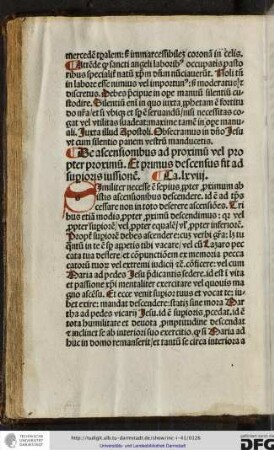 mercedē tꝑalem: s̄ immarcessibilē coronā in celis.
Attēde q̄ sancti angeli laborib⁹ occupatis pasto
ribus specialit̄ natū xp̄m dn̄m nūciauerūt. Noli tn̄
in labore esse nimius vel importun⁹: s̄ moderatus et
discretus. Debes p̄cipue in ope manuū silentiū cu
stodire. Silentiū eni in quo iuxta ꝓphetam ē fortitu
do nr̄a et sꝑ vbiqꝫ et sꝑ ē seruandū: nisi necessitas co
gat vel vtilitas suadeat: maxime tamē in ope manu
ali. Juxta illud Apostoli. Obsecramus in dn̄o Jesu
vt cum silentio panem vestrū manducetis.
De ascensionibus ad proximū vel pro
pter proximū. Et primus descensus fit ad
suꝑioris iussionē. Ca. lxviij.
Similiter necesse ē sepius ꝓpter proximum ab
istis ascensionibus descendere. id ē ad tꝑs
cessare non in toto deserere ascensiōes. Tri
bus etiā modis ꝓpter proximū descendimus: qꝛ vel
ꝓpter suꝑiorē vel ꝓpter equalē vel ꝓpter inferiorē.
Propt̄ suꝑiorē debes ascender et
 in te sꝑ apertis tibi vacare vel cū Lazaro pec
cata tua deflere et cōpunctiōem ex memoria pecca
torū tuoꝝ vel extremi iudicij conficere: vel cum
Maria ad pedes Jesu p̄dicantis sedere. id est vita
et passione xp̄i mentaliter exercitare vel quouis ma
gno ascēsu. Et ecce venit suꝑior tuus et vocat te: iu
bet exire: mandat descendere: statim sine mora Mar
tha ad pedes vicarij Jesu. id ē suꝑioris ꝓcedat. id ē
tota humilitate et deuota ꝓmptitudine descendat
et inclinet se ab interiori suo exercitio. qꝫ si Maria ad
huc in domo remanserit et tantū se circa interiora a
TECHNISCHE UNIVERSITÄT DARMSTADT
http://tudigit.ulb.tu-darmstadt.de/show/inc-i-43/0126
Universitäts- und Landesbibliothek Darmstadt
gefördert durch
DFG